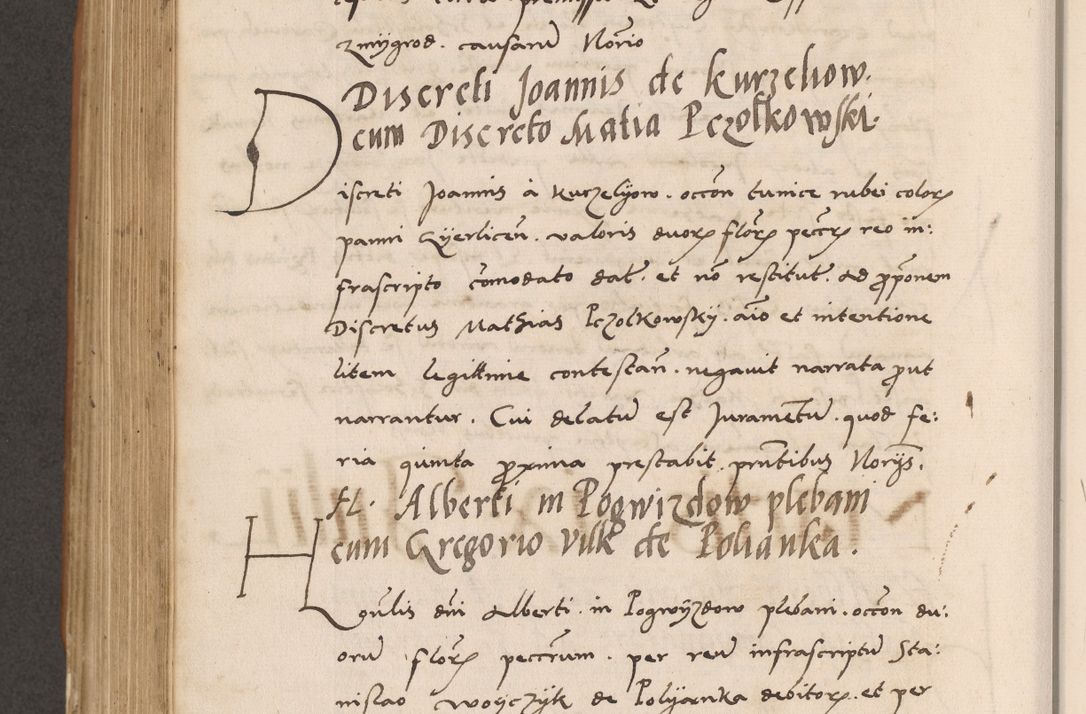 zmygrod. causarum Norio
Discreti Joannis de Kurzeliow.
cum Discreto Matia Pczolkowski.
Discreti Joannis à Kurzelyow. occon tunice rubei color
panni Gyerlicen. valoris duor flor peccr reo in:
frascripto comodato dat. et no restitut. Ad ppponem
Discretus Mathias Pczolkowsky. aio et intentione
litem legittime contestan. negavit narrata put
narrantur. Cui delatu est Juramentu. quod fe:
ria quinta proxima prestabit. prntibus Norijs.
H. Alberti in Pogwizdow plebani
cum Gregorio Vilk de Polianka.
Honlis dni Alberti. in Pogwyzdow plebani. occon du:
oru flor peccrum. per reu infrascriptu Sta:
nislao Woyczyk de Polyanka debitor. et per